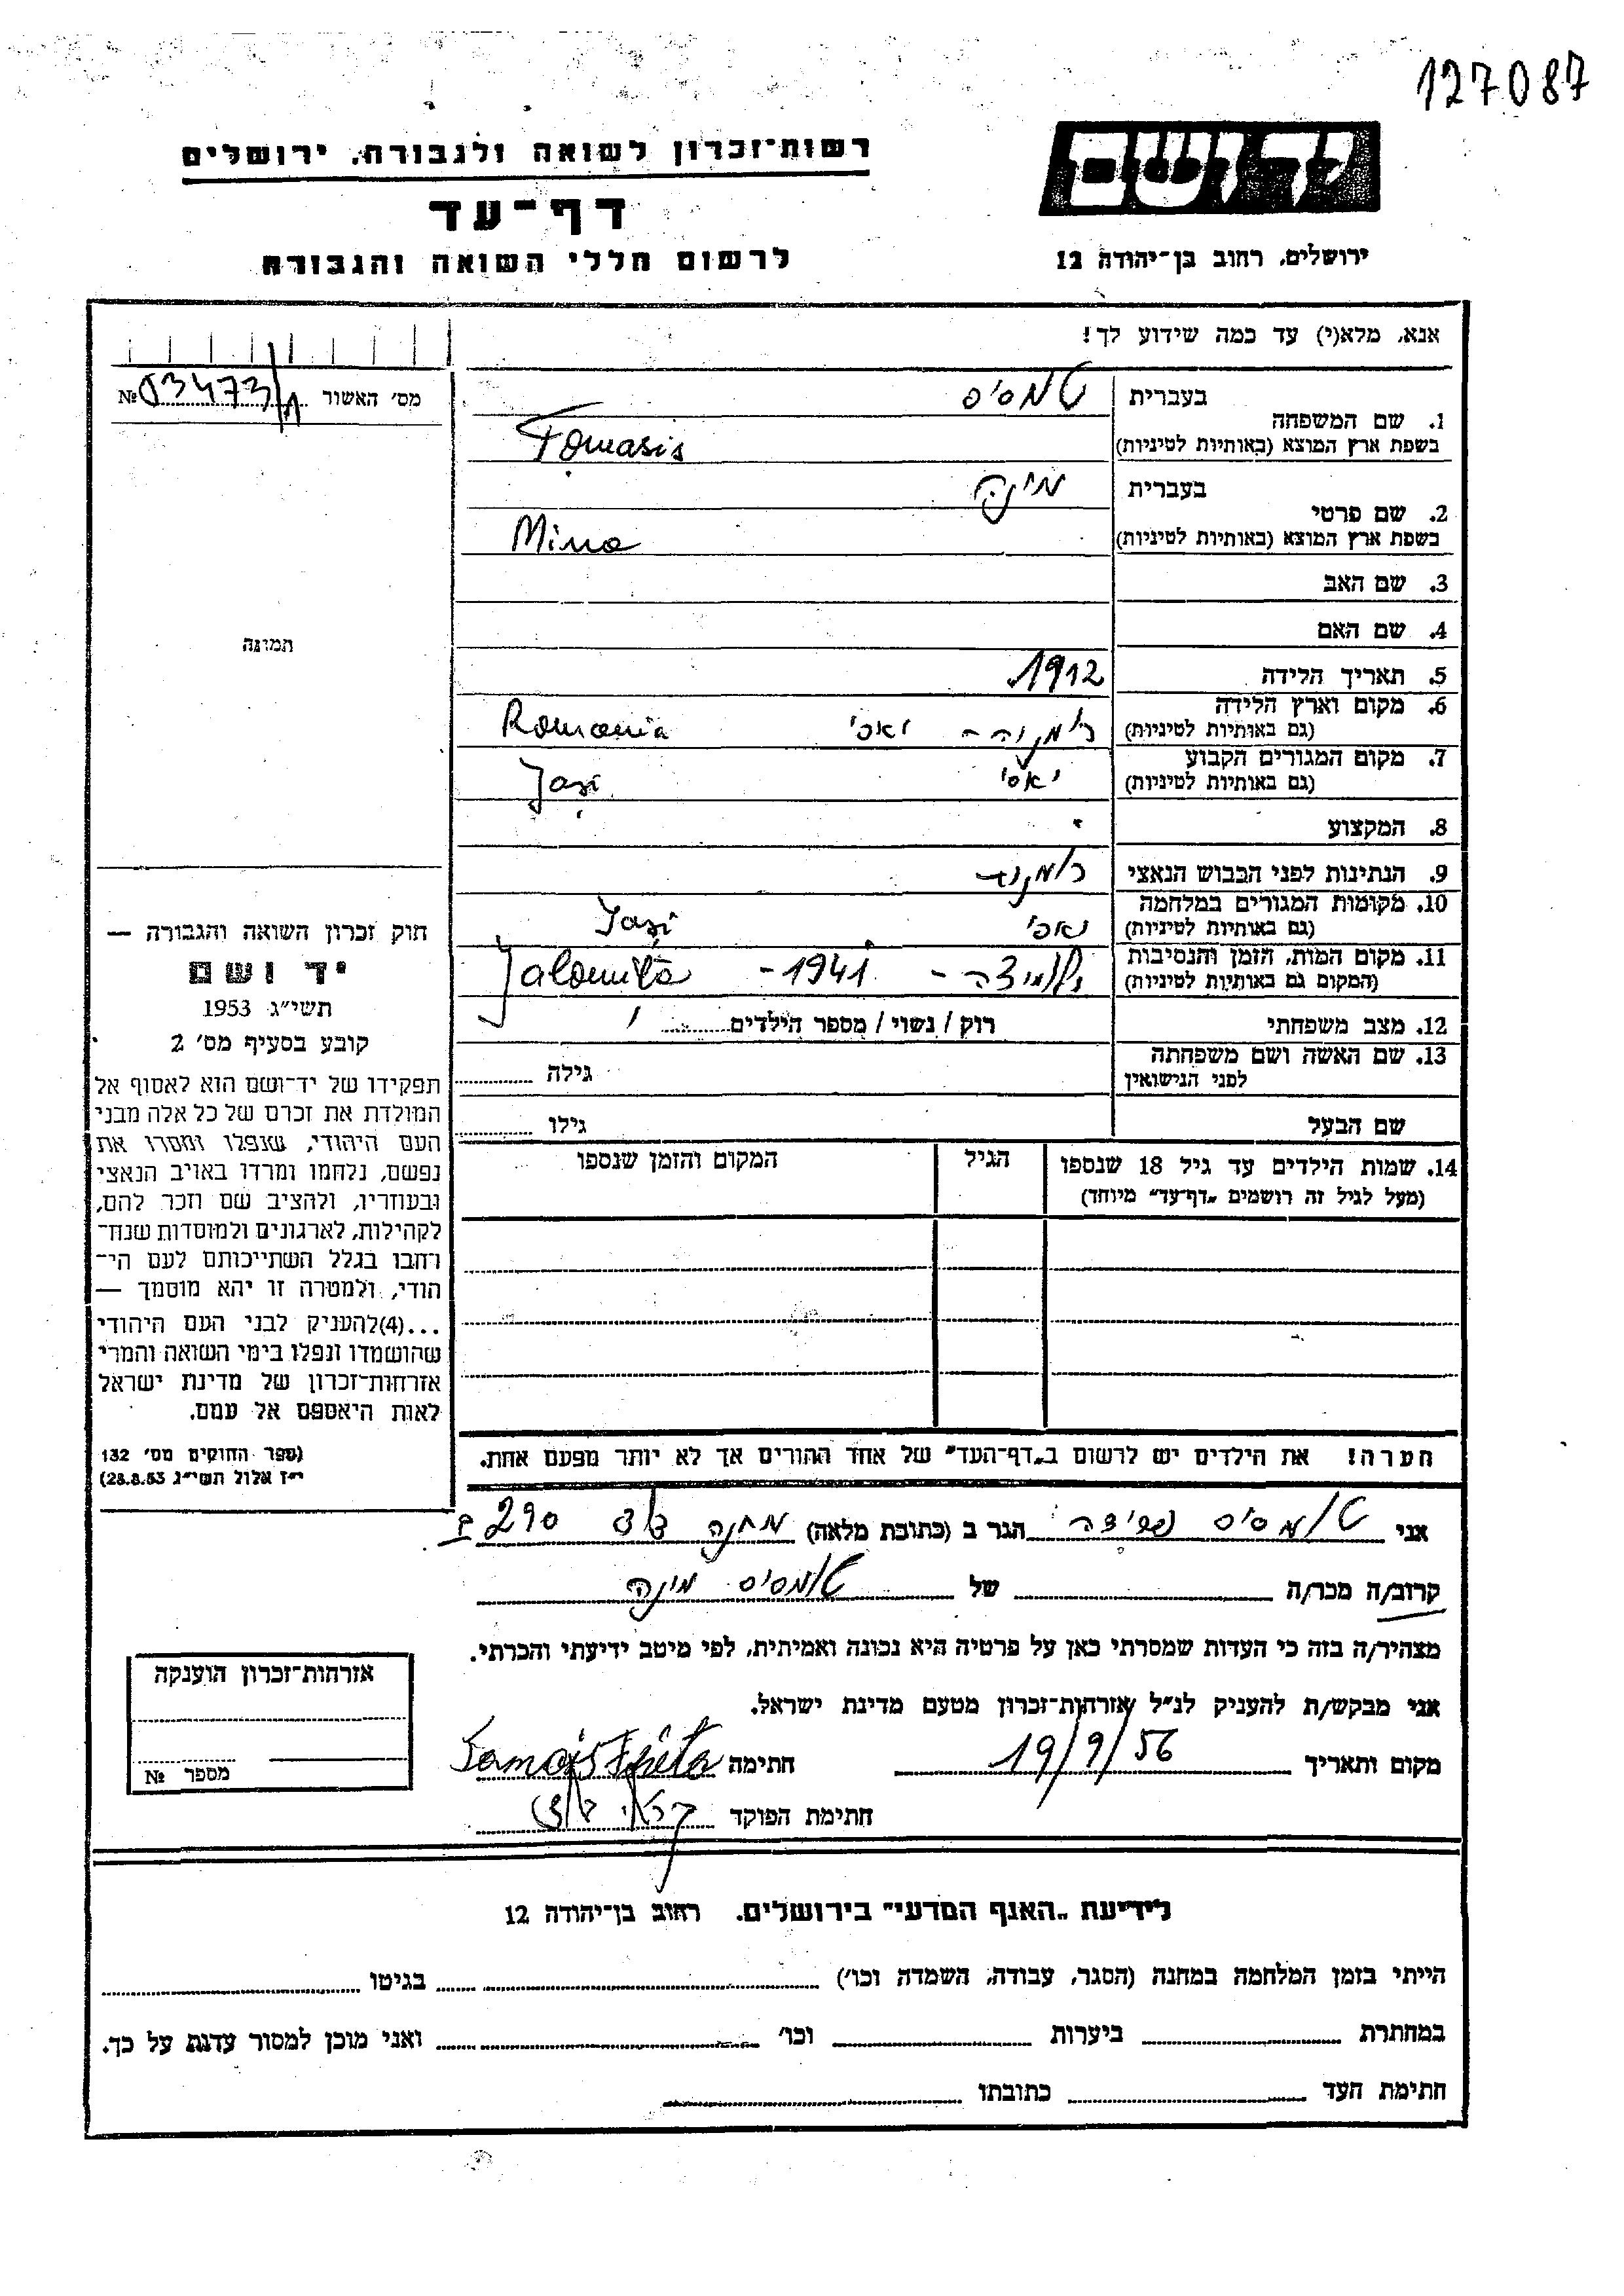 127087
יד ושם
רשות־זכרון לשואה ולגבורה. ירושלים
דף־עד
ירושלים. רחוב בן־יהודה 12
לרשום חללי השואה והגבורה
אנא, מלא(י) עד כמה שידוע לך!
מס׳ האשור № 03473/
תמונה
1. שם המשפחה
בעברית טמסיס
בשפת ארץ המוצא (באותיות לטיניות) Tomasis
2. שם פרטי
בעברית מינה
בשפת ארץ המוצא (באותיות לטיניות) Mina
3. שם האב
4. שם האם
5. תאריך הלידה 1912
6. מקום וארץ הלידה
(גם באותיות לטיניות) רומניה - יאסי Romania
7. מקום המגורים הקבוע
(גם באותיות לטיניות) יאסי Jași
8. המקצוע
9. הנתינות לפני הכבוש הנאצי
10. מקומות המגורים במלחמה
(גם באותיות לטיניות) יאסי Jași
11. מקום המות, הזמן והנסיבות
(המקום גם באותיות לטיניות) ילומיצה - 1941 - Jalomița
12. מצב משפחתי רוק / נשוי / מספר הילדים
13. שם האשה ושם משפחתה
לפני הנישואין גילה
שם הבעל גילו
14. שמות הילדים עד גיל 18 שנספו הגיל המקום והזמן שנספו
(מעל לגיל זה רושמים „דף־עד״ מיוחד)
חוק זכרון השואה והגבורה —
יד ושם
תשי״ג 1953
קובע בסעיף מס׳ 2
תפקידו של יד־ושם הוא לאסוף אל
המולדת את זכרם של כל אלה מבני
העם היהודי, שנפלו ומסרו את
נפשם, נלחמו ומרדו באויב הנאצי
ובעוזריו, ולהציב שם וזכר להם,
לקהילות, לארגונים ולמוסדות שנח־
רחבו בגלל השתייכותם לעם הי־
הודי, ולמטרה זו יהא מוסמך —
...(4) להעניק לבני העם היהודי
שהושמדו ונפלו בימי השואה והמרי
אזרחות־זכרון של מדינת ישראל
לאות היאספם אל עמם.
(ספר החוקים מס׳ 132
י״ז אלול תשי״ג 28.8.53)
הערה! את הילדים יש לרשום ב„דף־העד״ של אחד ההורים אך לא יותר מפעם אחת.
אני טומסיס הגר ב (כתובת מלאה) מחנה 290
קרוב/ה מכר/ה של טומסיס מינה
מצהיר/ה בזה כי העדות שמסרתי כאן על פרטיה היא נכונה ואמיתית, לפי מיטב ידיעתי והכרתי.
אני מבקש/ת להעניק לנ״ל אזרחות־זכרון מטעם מדינת ישראל.
מקום ותאריך 19/9/56 חתימה
חתימת הפוקד
אזרחות־זכרון הוענקה
מספר №
לידיעת „האגף המדעי״ בירושלים. רחוב בן־יהודה 12
הייתי בזמן המלחמה במחנה (הסגר, עבודה, השמדה וכו׳) בגיטו
במחתרת ביערות וכו׳ ואני מוכן למסור עדות על כך.
חתימת העד כתובתו